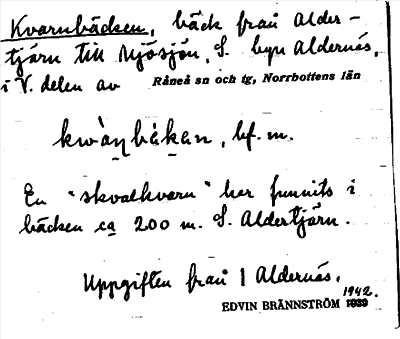 Kvarnbäcken, bäck från Alder-
tjärn till Mjösjön, S. byn Aldernäs,
i V. delen av Råneå sn och tg, Norrbottens län
kwàṇbäkan, bf. m.
En "skvalkvarn" har funnits i
bäcken ca 200 m. S. Aldertjärn.
Uppgiften från 1 Aldernäs.
EDVIN BRÄNNSTRÖM 1939 1942.